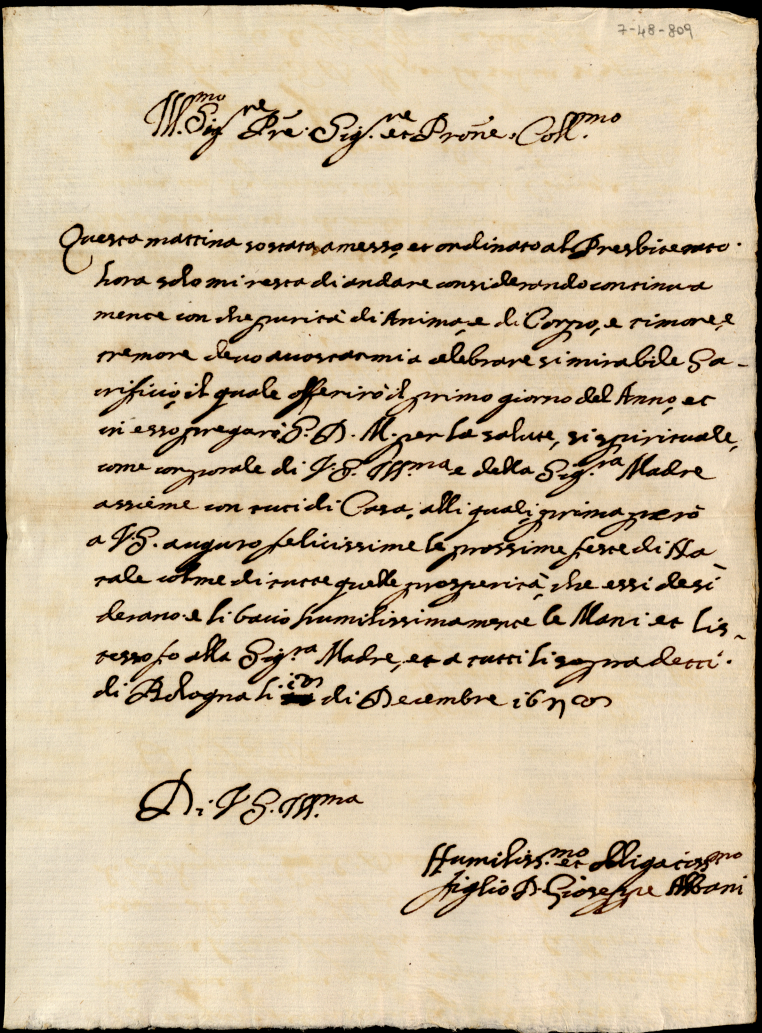 7-48-809
Ill.mo Sig.re Pre. Sig.re et Prone. Coll.mo
Questa mattina so stata amesso, et ordinato al Presbiterato.
hora solo mi resta di andare considerando continua
mente con che purità di Anima, e di Corpo, e timore, e
tremore devo accostarmi a celebrare si mirabile Sa-
crificio, il quale offerirò il primo giorno del Anno, et
in esso pregarò S. D. M. per la salute, si spirituale,
come corporale di V.S. Ill.ma e della Sig.ra Madre
assieme con tuti di Casa, alli quali, prima però
a V.S. auguro felicissime le prossime feste di Na-
tale colme di tutte quelle prosperità, che essi desi
derano. e li bacio humilissimamente le Mani et lis-
tesso fo alla Sig.ra Madre, et a tutti li sopra detti.
di Bologna li di Decembre
Di V.S. Ill.ma
Humiliss.mo et obligatiss.mo
figlio D. Gioseppe Albani